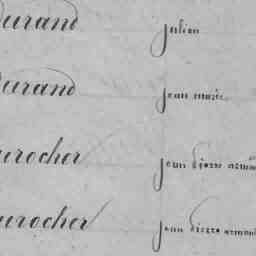 Durand julien
Durand jean marie
Durocher jean pierre
Durocher jean pierre